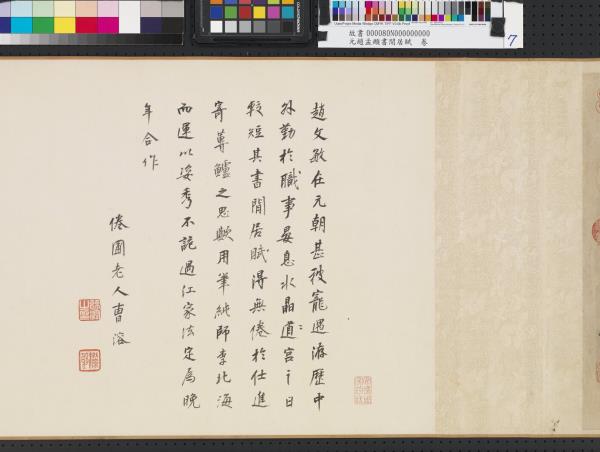 故書 000080N000000000
元趙孟頫書閒居賦 卷
7
趙文敏在元朝甚被寵遇游歷中
外勤於職事晏息水晶道宮之日
較短其書閒居賦得無倦於仕進
寄蓴鱸之思歟用筆純師李北海
而運以姿秀不詭過江家法定為晚
年合作
倦圃老人曹溶